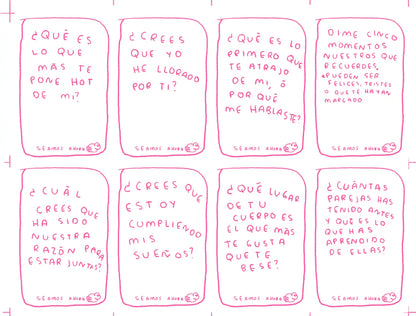 ¿QUÉ ES
LO QUE
MÁS TE
PONE HOT
DE MI?
SEAMOS AHORA
¿CREES
QUE YO
HE LLORADO
POR TI?
SEAMOS AHORA
¿QUÉ ES LO
PRIMERO QUE
TE ATRAJO
DE MI, Ó
POR QUÉ
ME HABLASTE?
SEAMOS AHORA
DIME CINCO
MOMENTOS
NUESTROS QUE
RECUERDES,
PUEDEN SER
FELICES, TRISTES
O QUE TE HAYAN
MARCADO
SEAMOS AHORA
¿CUÁL
CREES QUE
HA SIDO
NUESTRA
RAZÓN PARA
ESTAR JUNTAS?
SEAMOS AHORA
¿CREES QUE
ESTOY
CUMPLIENDO
MIS
SUEÑOS?
SEAMOS AHORA
¿QUÉ LUGAR
DE TU
CUERPO ES
EL QUE MÁS
TE GUSTA
QUE TE
BESE?
SEAMOS AHORA
¿CUÁNTAS
PAREJAS HAS
TENIDO ANTES
Y QUÉ ES LO
QUE HAS
APRENDIDO
DE ELLAS?
SEAMOS AHORA